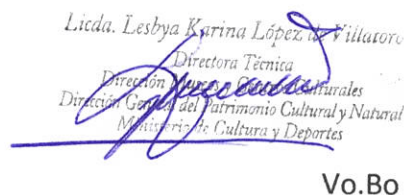 Licda. Lesbya Karina López de Villatoro
Directora Técnica
Dirección Culturales
Dirección General del Patrimonio Cultural y Natural
Ministerio de Cultura y Deportes
Vo.Bo